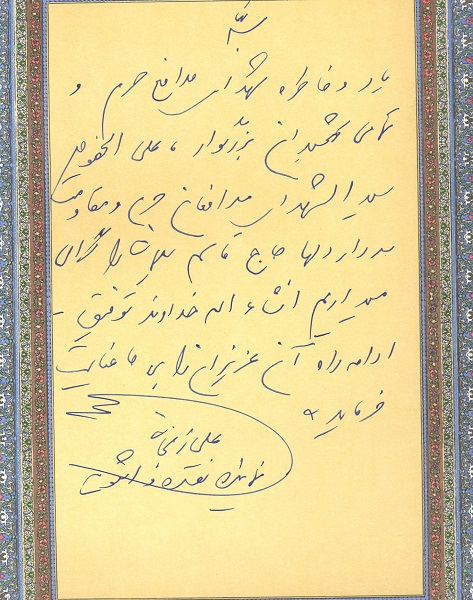 یاد و خاطره شهدای مدافع حرم و
تمامی شهیدان بزرگوار ، علی الخصوص
سید الشهدای مدافعان حرم و مقاومت
سردار دلها حاج قاسم سلیمانی را گرامی
میداریم انشاء اله خداوند توفیق
ادامه راه آن عزیزان را به ما عنایت
فرماید
علی زنجانی
نماینده نقده و اشنویه